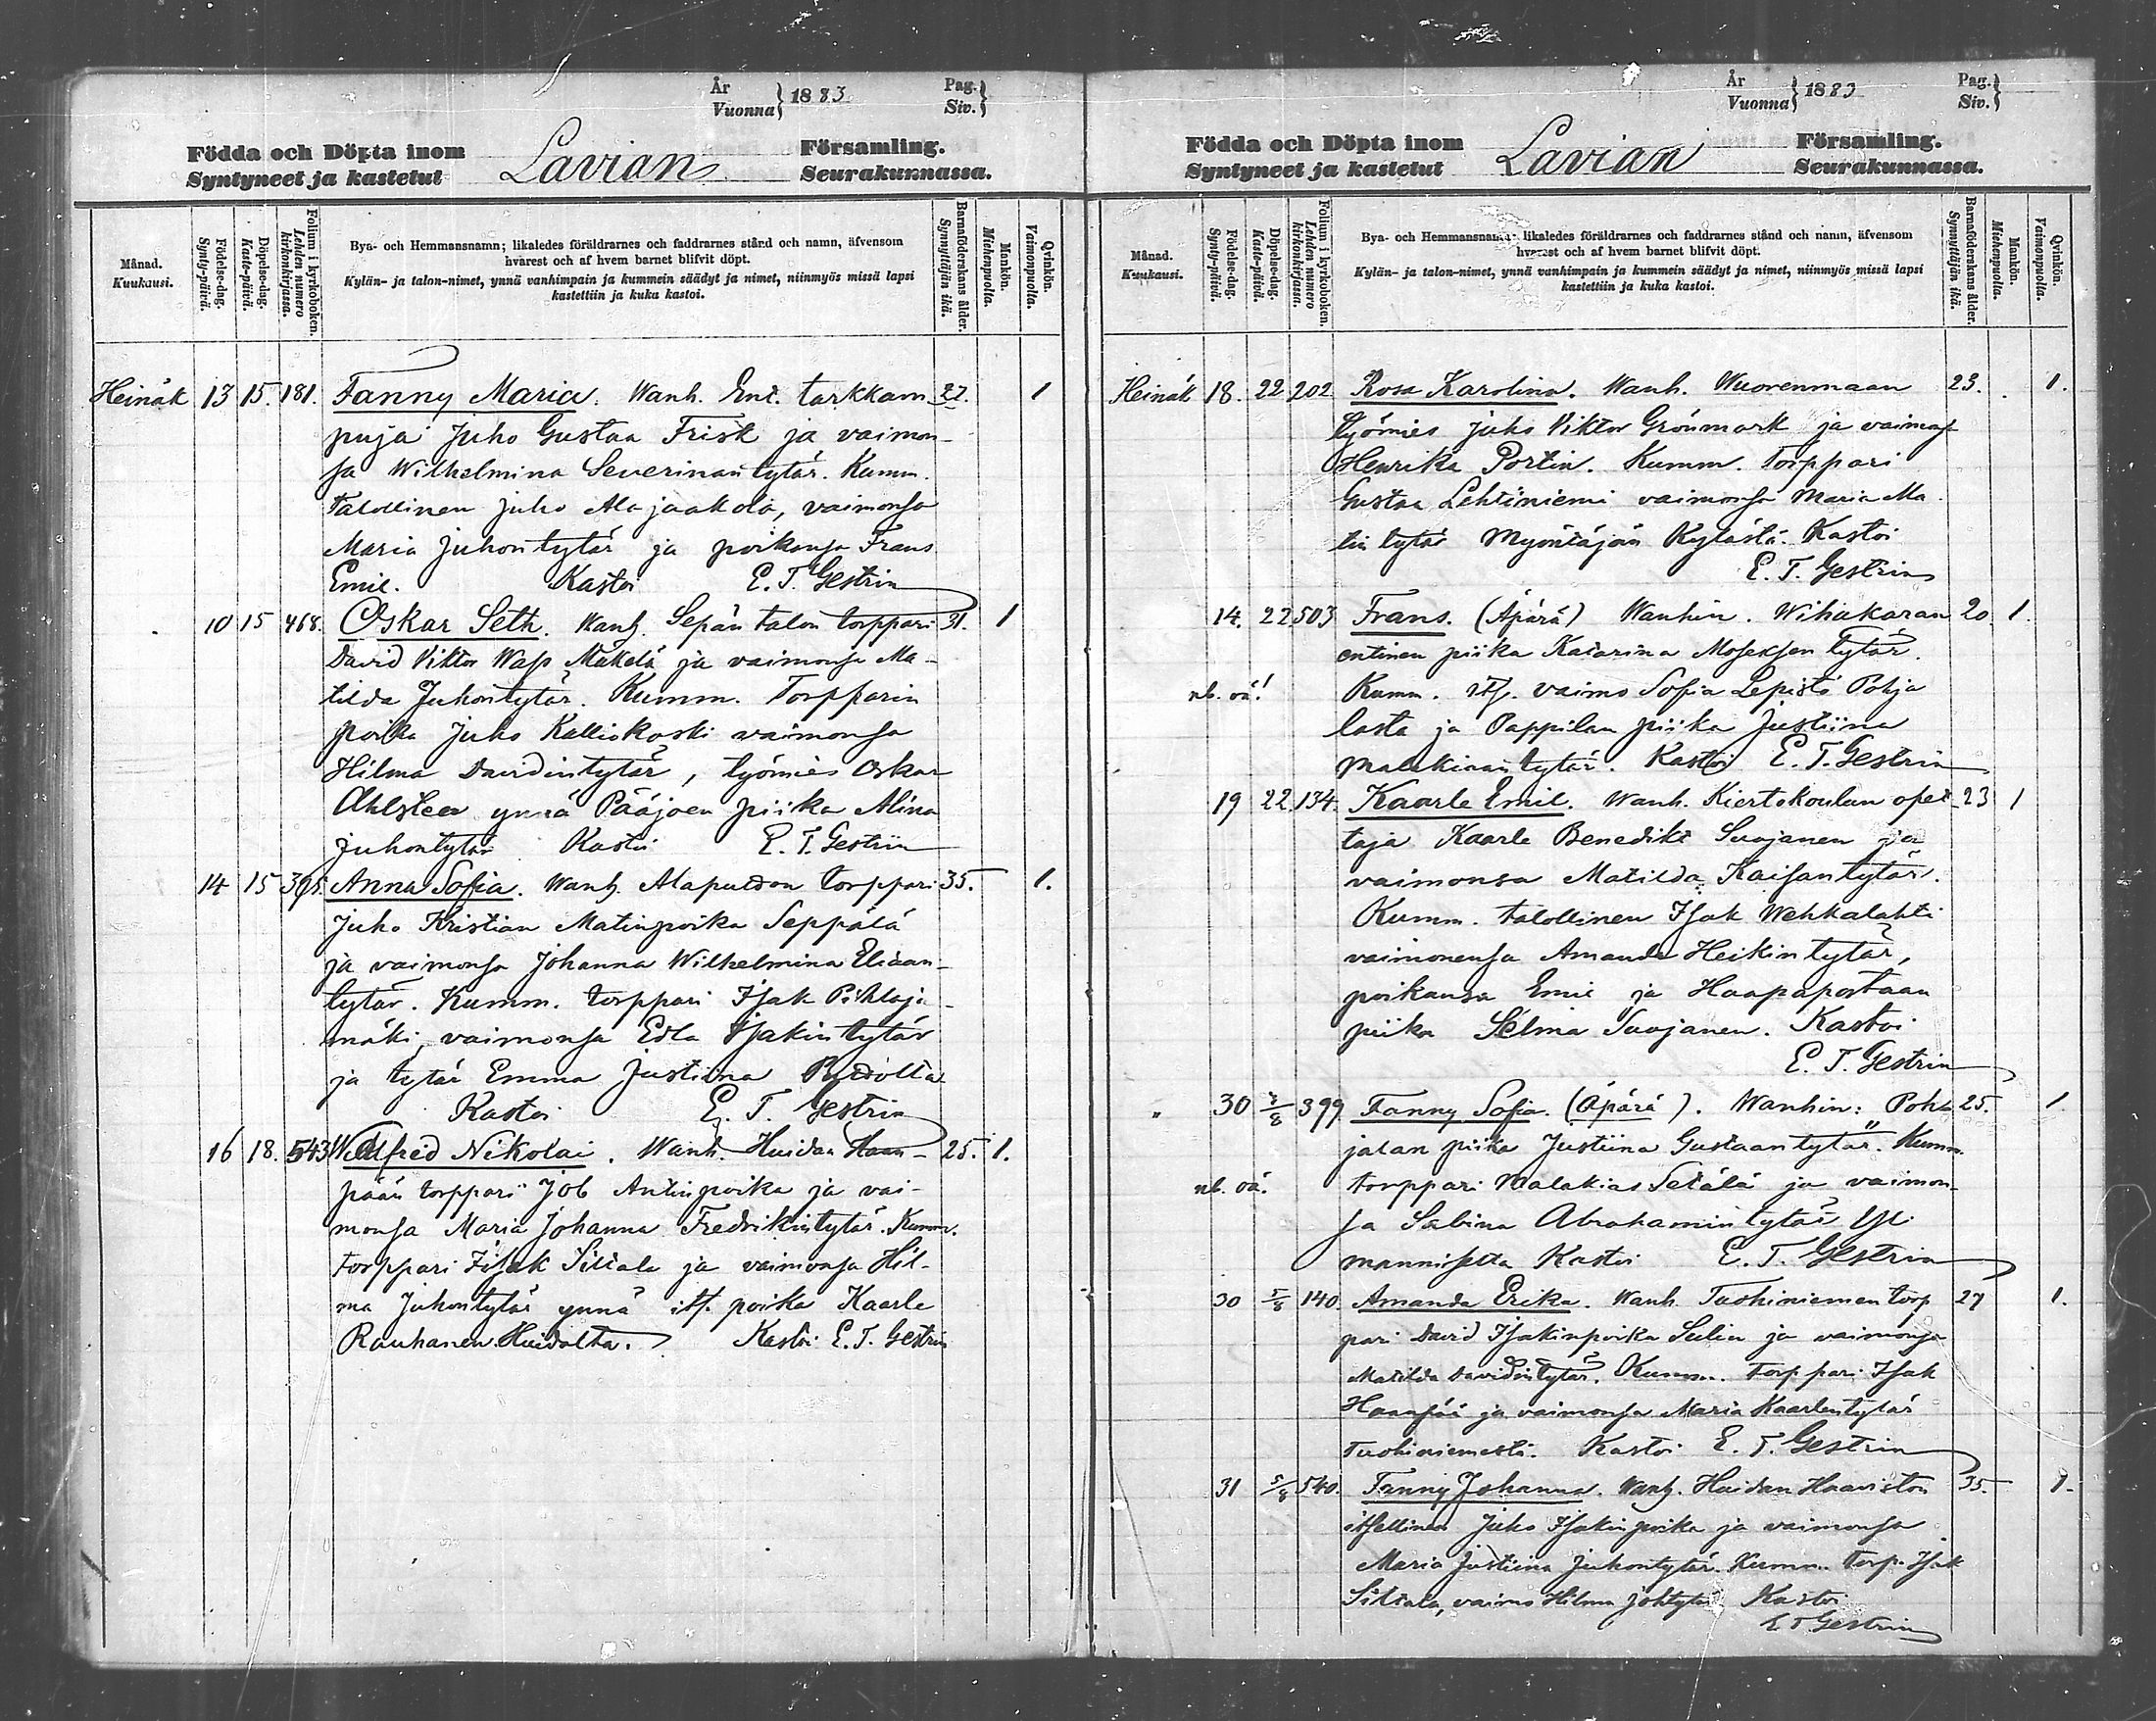 År
Vuonna } 1883
Pag.
Siv. }
Födda och Döpta inom
Syntyneet ja kastetut
Lavian
Församling.
Seurakunnassa.
Månad.
Kuukausi.
Födelse-dag.
Synty-päivä.
Döpelse-dag.
Kaste-päivä.
Folium i kyrkoboken.
Lehden numero kirkonkirjassa.
Bya- och Hemmansnamn; likaledes föräldrarnes och faddrarnes stånd och namn, äfvensom
hvarest och af hvem barnet blifvit döpt.
Kylän- ja talon-nimet, ynnä vanhimpain ja kummein säädyt ja nimet, niinmyös missä lapsi
kastettiin ja kuka kastoi.
Barnaföderskans ålder.
Synnyttäjän ikä.
Mankön.
Miehenpuolta.
Qvinkön.
Vaimonpuolta.
Heinäk 13 15. 181. Fanny Maria. Wanh. Ent. tarkkam 22. 1
puja Juho Gustaa Frisk ja vaimon-
sa Wilhelmina Severinantytär. Kumm.
Talollinen Juho Ala jaakola, vaimonsa
Maria Juhontytär ja poikansa Frans
Emil. Kastoi E. T. Gestrin
10 15 468. Oskar Seth. Wanh. Sepän talon torppari 31. 1
David Viktor Mäkelä ja vaimonsa Ma-
tilda Juhontytär. Kumm. Torpparin
poika Juho Kalliokoski vaimonsa
Hilma Davidintytär, työmies Oskar
Ahlsten ynnä Pääjoen piika Alina
Juhontytär Kastoi E. T. Gestrin
14 15 395. Anna Sofia. Wanh. Alapuidon torppari 35. 1.
Juho Kristian Matinpoika Seppälä
ja vaimonsa Johanna Wilhelmina Eliaan-
tytär. Kumm. torppari Isak Pihlaja-
mäki, vaimonsa Edla Isakintytär
ja tytär Emma Justiina
Kastoi E. T. Gestrin
16 18. 543 Nikolai. Wanh. Huidan Haan- 25. 1.
pään torppari Job Antinpoika ja vai-
monsa Maria Johanna Fredrikintytär. Kumm.
torppari Isak Siltala ja vaimonsa Hil-
ma Juhontytär ynnä its. poika Kaarle
Rauhanen Huidalta. Kastoi E. T. Gestrin
År
Vuonna } 1883
Pag.
Siv. }
Födda och Döpta inom
Syntyneet ja kastetut
Lavian
Församling.
Seurakunnassa.
Månad.
Kuukausi.
Födelse-dag.
Synty-päivä.
Döpelse-dag.
Kaste-päivä.
Folium i kyrkoboken.
Lehden numero kirkonkirjassa.
Bya- och Hemmansnamn; likaledes föräldrarnes och faddrarnes stånd och namn, äfvensom
hvarest och af hvem barnet blifvit döpt.
Kylän- ja talon-nimet, ynnä vanhimpain ja kummein säädyt ja nimet, niinmyös missä lapsi
kastettiin ja kuka kastoi.
Barnaföderskans ålder.
Synnyttäjän ikä.
Mankön.
Miehenpuolta.
Qvinkön.
Vaimonpuolta.
Heinäk 18. 22 202 Rosa Karolina. Wanh. Wuorenmaan 23. 1.
työmies Juho Viktor Grönmark ja vaimonsa
Henrika Portin. Kumm. Torppari
Gustaa Lehtiniemi vaimonsa Maria Ma-
tin tytär Myöntäjän Kylästä. Kastoi
E. T. Gestrin
14. 22. 503 Frans. (Äpärä) Wanhin. Wihakaran 20. 1.
entinen piika Katarina Moseksen tytär.
nb. oä! Kumm. its. vaimo Sofia Lepistö Pohja
lasta ja Pappilan piika Justiina
Malakiaan tytär. Kastoi E. T. Gestrin
19 22. 134. Kaarle Emil. Wanh. Kiertokoulun opet- 23 1
taja Kaarle Benedikt Suojanen ja
vaimonsa Matilda Kaisantytär.
Kumm. talollinen Isak Wehkalahti
vaimonensa Amanda Heikintytär,
poikansa Emil ja Haapaportaan
piika Selma Suojanen. Kastoi
E. T. Gestrin
" 30 3/8 399 Fanny Sofia. (Äpärä). Wanhin: Poh- 25. 1.
jalan piika Justiina Gustaantytär. Kumm.
nb. oä. torppari Malakias Setälä ja vaimon-
sa Sabina Abrahamintytär
Kastoi E. T. Gestrin
30 5/8 140. Amanda Erika. Wanh. Tuohiniemen torp 27 1.
pari David Isakinpoika Sulin ja vaimonsa
Matilda Davidintytär. Kumm. torppari Isak
Haanpää ja vaimonsa Maria Kaarlentytär
Tuohiniemestä. Kastoi E. T. Gestrin
31 5/8 540. Fanny Johanna. Wanh. Huidan Haaviston 35. 1.
itsellinen Juho Isakinpoika ja vaimonsa
Maria Justiina Juhontytär. Kumm. torp. Isak
Siltala, vaimo Hilma Kastoi
E T Gestrin